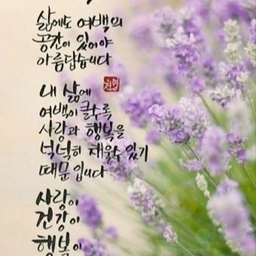 삶에도 여백의
공간이 있어야
아름답습니다
내 삶에
여백이 클수록
사랑과 행복을
넉넉히 채울수 있기
때문입니다
사랑이
건강이
행복이